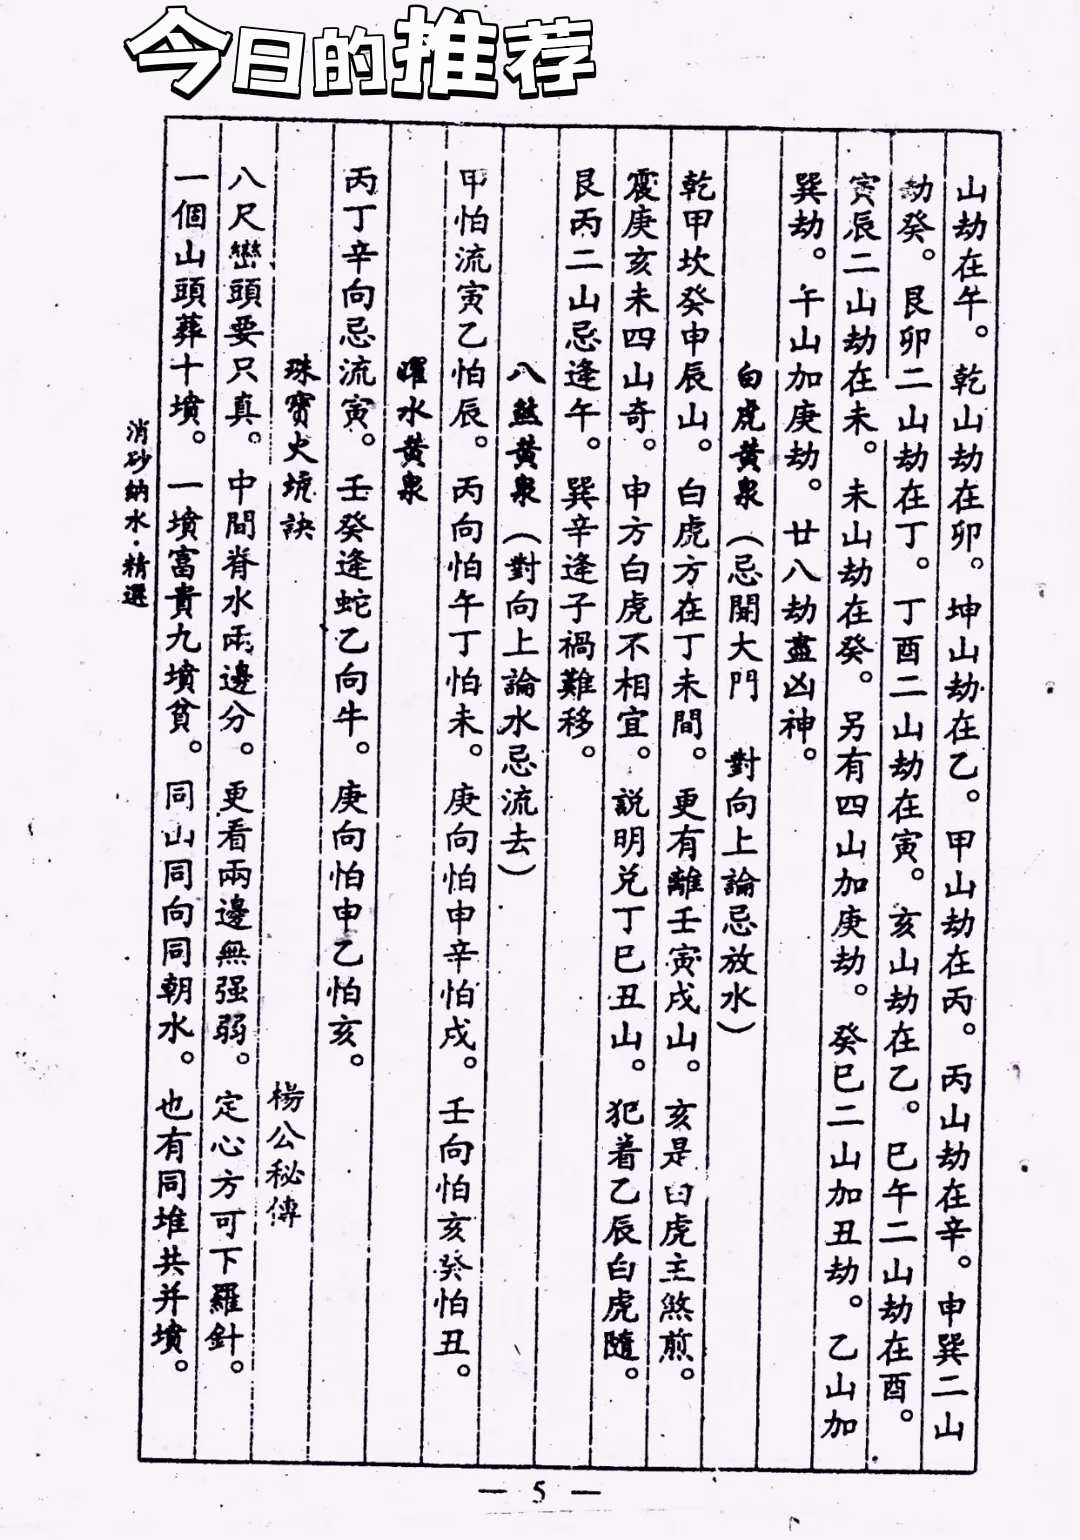 今日的推荐
山劫在午。乾山劫在卯。坤山劫在乙。甲山劫在丙。丙山劫在辛。申巽二山
劫癸。艮卯二山劫在丁。丁酉二山劫在寅。亥山劫在乙。巳午二山劫在酉。
寅辰二山劫在未。未山劫在癸。另有四山加庚劫。癸巳二山加丑劫。乙山加
巽劫。午山加庚劫。廿八劫盡凶神。
白虎黄泉（忌開大門 對向上論忌放水）
乾甲坎癸申辰山。白虎方在丁未間。更有離壬寅戌山。亥是白虎主煞煎。
震庚亥未四山奇。申方白虎不相宜。説明兑丁巳丑山。犯着乙辰白虎隨。
艮丙二山忌逢午。巽辛逢子禍難移。
八煞黄泉（對向上論水忌流去）
甲怕流寅乙怕辰。丙向怕午丁怕未。庚向怕申辛怕戌。壬向怕亥癸怕丑。
曜水黄泉
丙丁辛向忌流寅。壬癸逢蛇乙向牛。庚向怕申乙怕亥。
珠寶火坑訣 楊公秘傳
八尺巒頭要只真。中間脊水兩邊分。更看兩邊無强弱。定心方可下羅針。
一個山頭葬十墳。一墳富貴九墳貧。同山同向同朝水。也有同堆共并墳。
消砂納水·精選
— 5 —